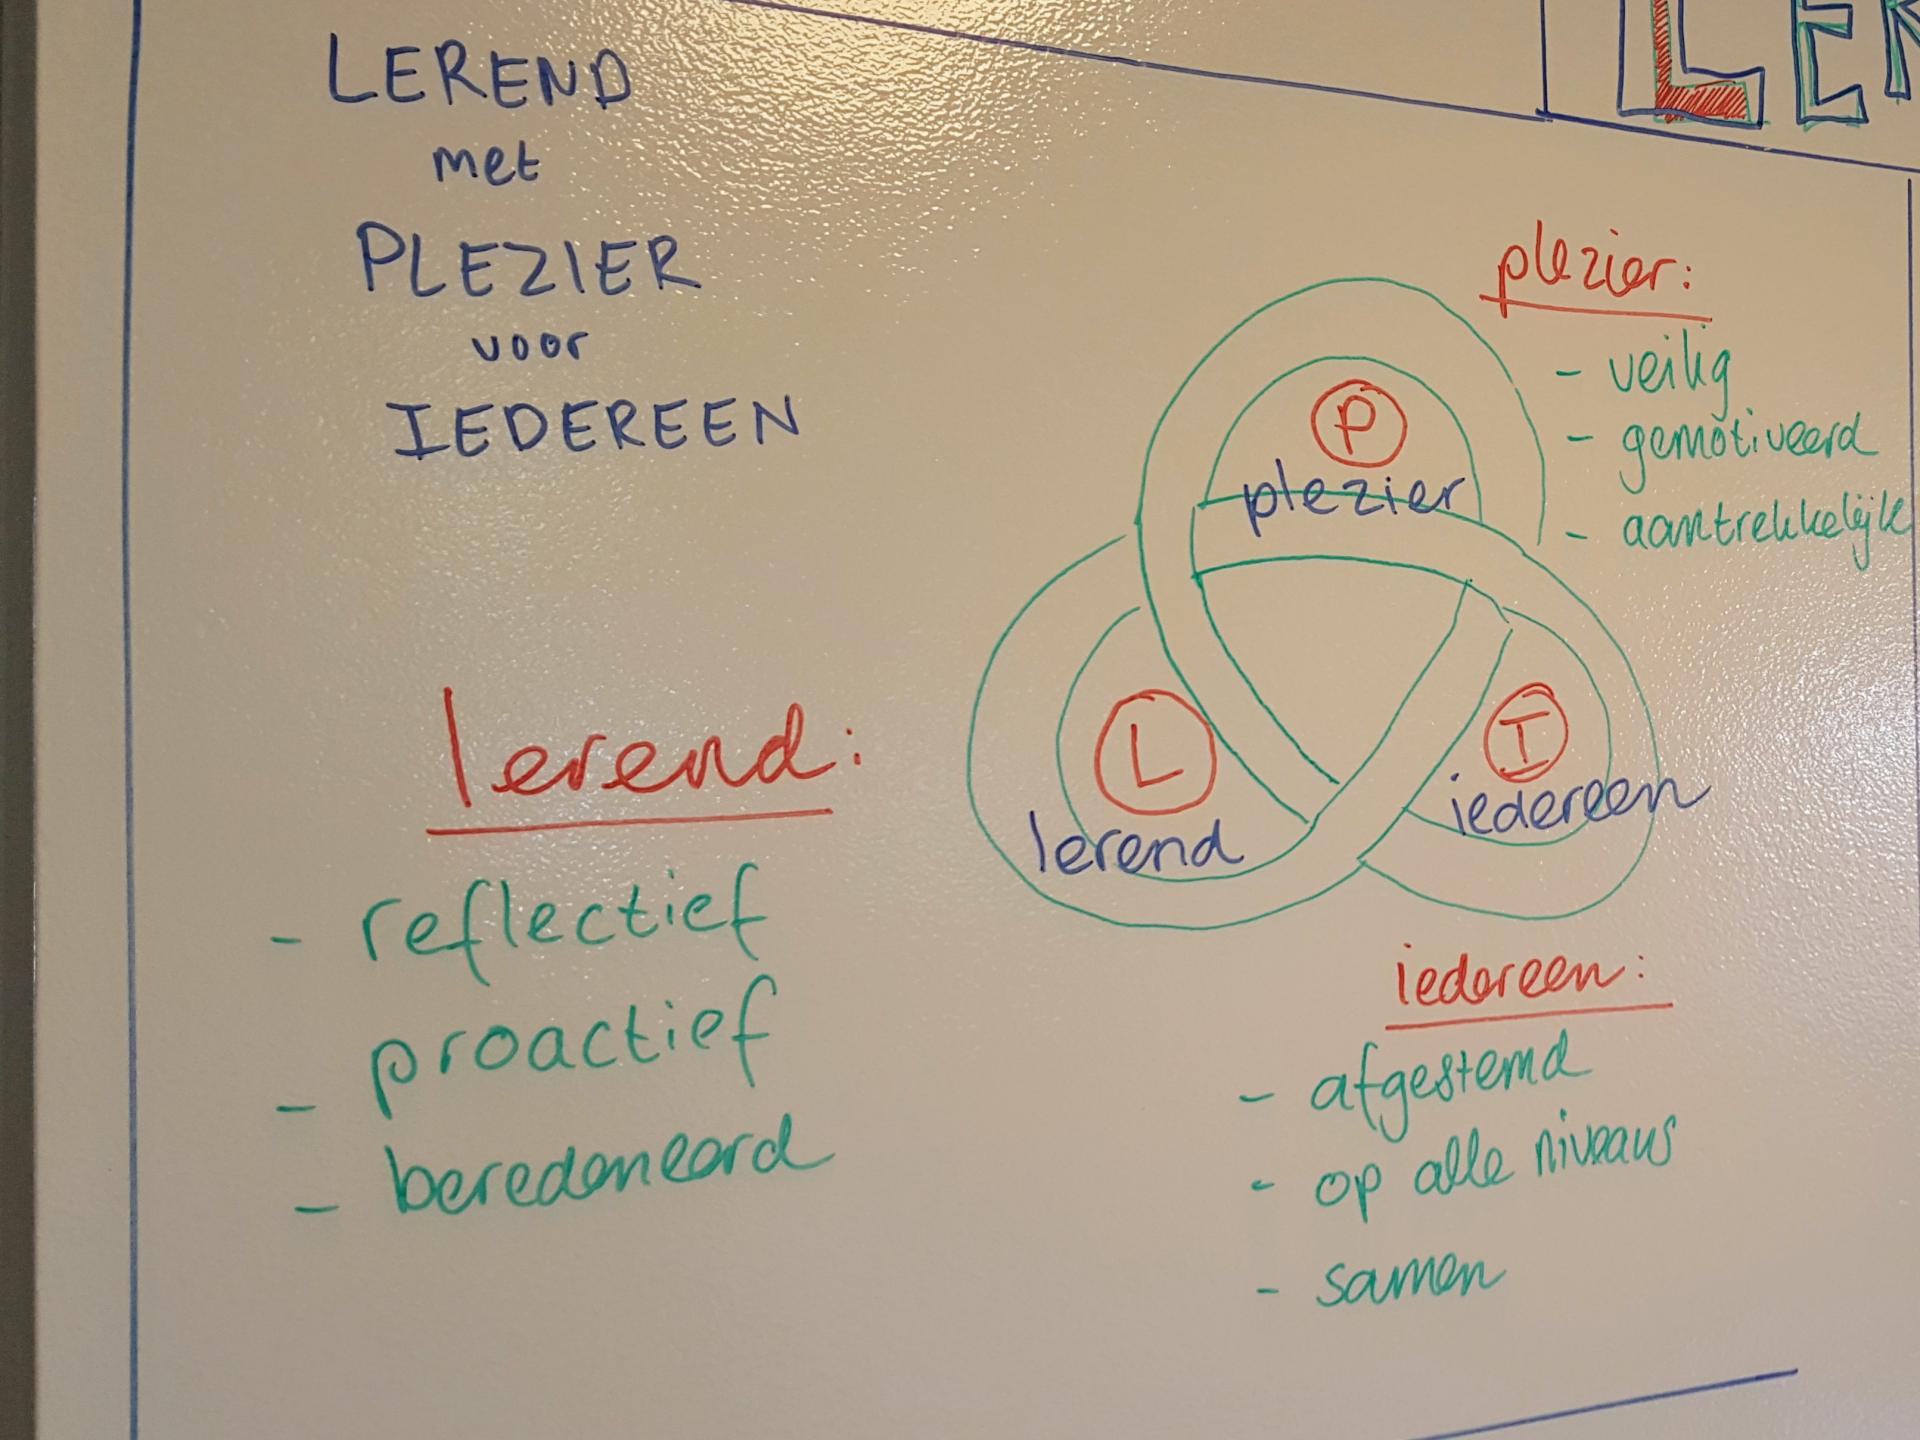 LEREND
met
PLEZIER
voor
IEDEREEN
LER
plezier:
- veilig
- gemotiveerd
- aantrekkelijk
P
plezier
L
lerend
I
iedereen
lerend:
- reflectief
- proactief
- beredeneerd
iedereen:
- afgestemd
- op alle niveaus
- samen